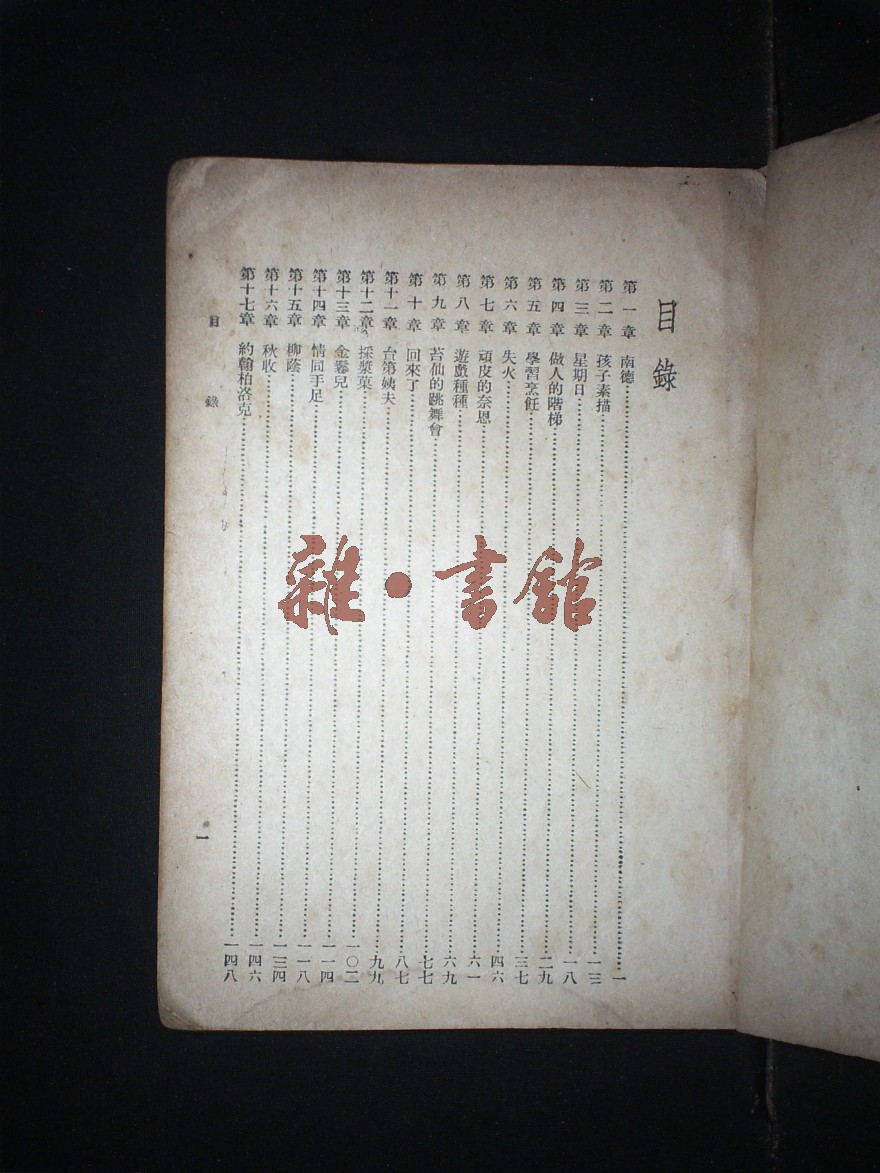 目錄
第一章 南德……一
第二章 孩子素描……一三
第三章 星期日……一八
第四章 做人的階梯……二九
第五章 學習烹飪……三七
第六章 失火……四六
第七章 頑皮的奈恩……六一
第八章 遊戲種種……六九
第九章 苔仙的跳舞會……七七
第十章 回來了……八七
第十一章 台第姨夫……九九
第十二章 採漿菓……一〇二
第十三章 金鬈兒……一一四
第十四章 情同手足……一一八
第十五章 柳蔭……一三四
第十六章 秋收……一四六
第十七章 約翰柏洛克……一四八
目錄
一
雜·書館